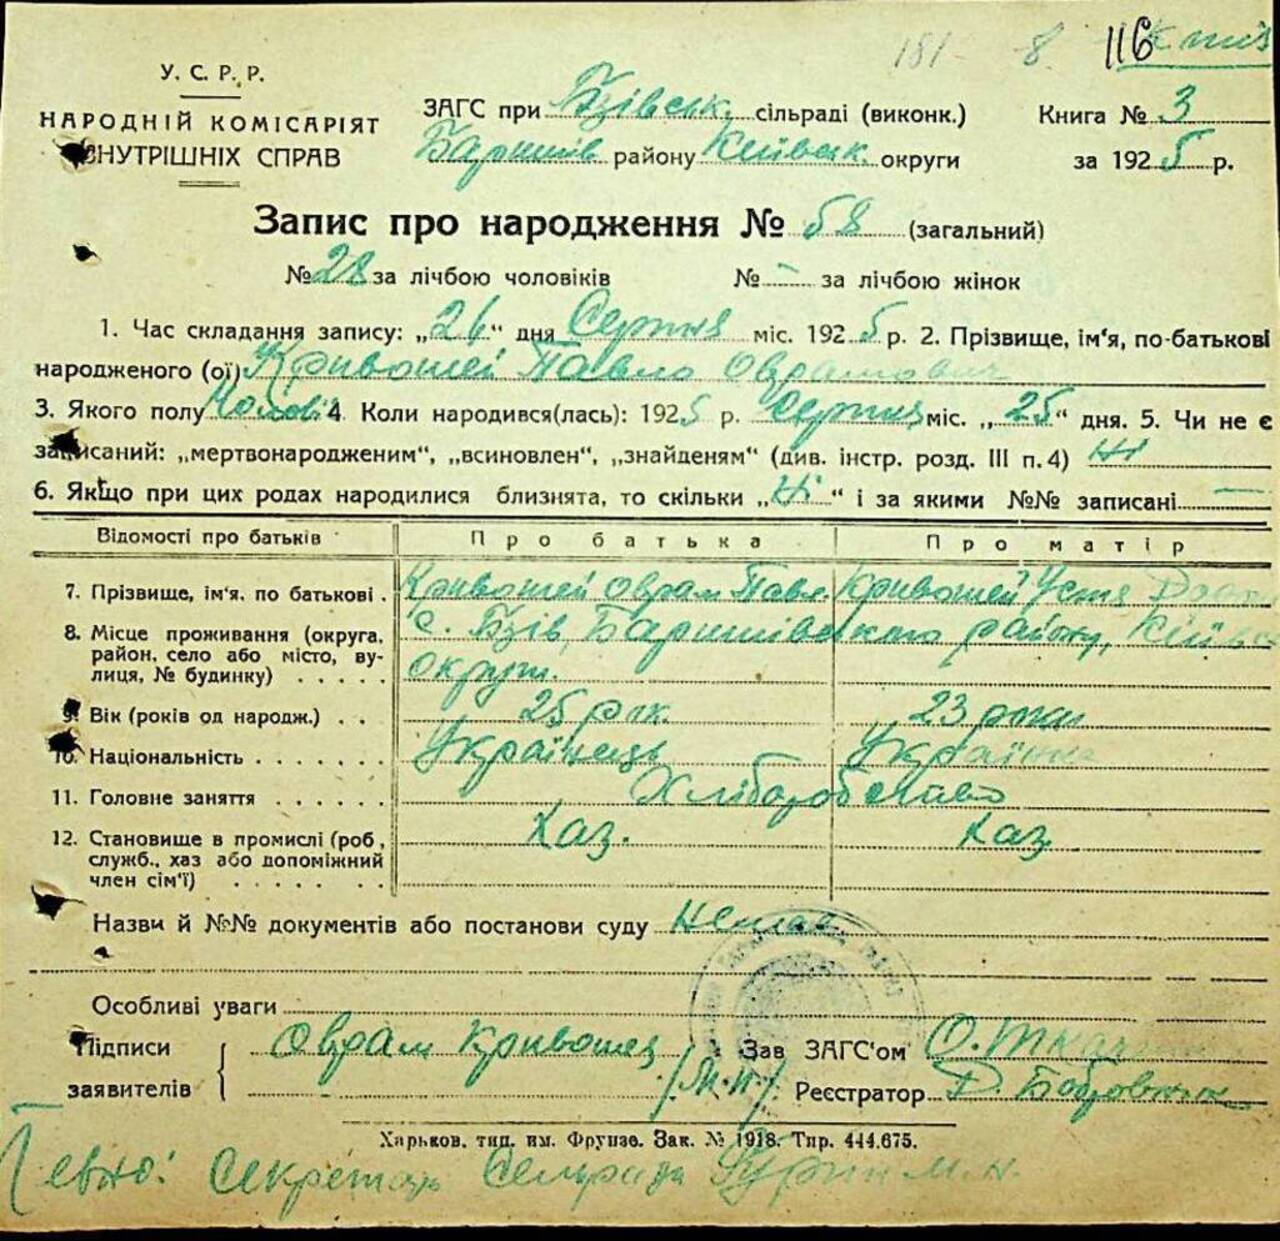 181 - 8 116 Київ
У. С. Р. Р.
НАРОДНІЙ КОМІСАРІЯТ
ВНУТРІШНІХ СПРАВ
ЗАГС при Бзівськ. сільраді (виконк.)
Баришів району Київськ. округи
Книга № 3
за 1925 р.
Запис про народження № 58 (загальний)
№ 28 за лічбою чоловіків № — за лічбою жінок
1. Час складання запису: „26“ дня Серпня міс. 1925 р. 2. Прізвище, ім'я, по-батькові
народженого (ої) Кривошей Павло Оврамович
3. Якого полу Чолові 4. Коли народився(лась): 1925 р. Серпня міс. „25“ дня. 5. Чи не є
записаний: „мертвонародженим“, „всиновлен“, „знайденям“ (див. інстр. розд. III п. 4) Ні
6. Якщо при цих родах народилися близнята, то скільки „Ні“ і за якими №№ записані —
Відомості про батьків Про батька Про матір
7. Прізвище, ім'я, по батькові . Кривошей Оврам Павл. Кривошей Устя
8. Місце проживання (округа, район, село або місто, вулиця, № будинку) . . . . . с. Бзів, Баришівського району, Київськ
округи.
9. Вік (років од народж.) . . 25 рок. 23 роки
10. Національність . . . . . . . Українець Українка
11. Головне заняття . . . . . . Хліборобство
12. Становище в промислі (роб, служб., хаз або допоміжний член сім'ї) . . . . . . Хаз. Хаз
Назви й №№ документів або постанови суду Немає.
Особливі уваги
Підписи
заявителів
Оврам Кривошей
/М.П./
Зав ЗАГС'ом О. Ткаченко
Реєстратор Д. Бобровник
Харьков. тип. им. Фрунзе. Зак. № 1918. Тир. 444.675.
Певно: Секретарь Сельради